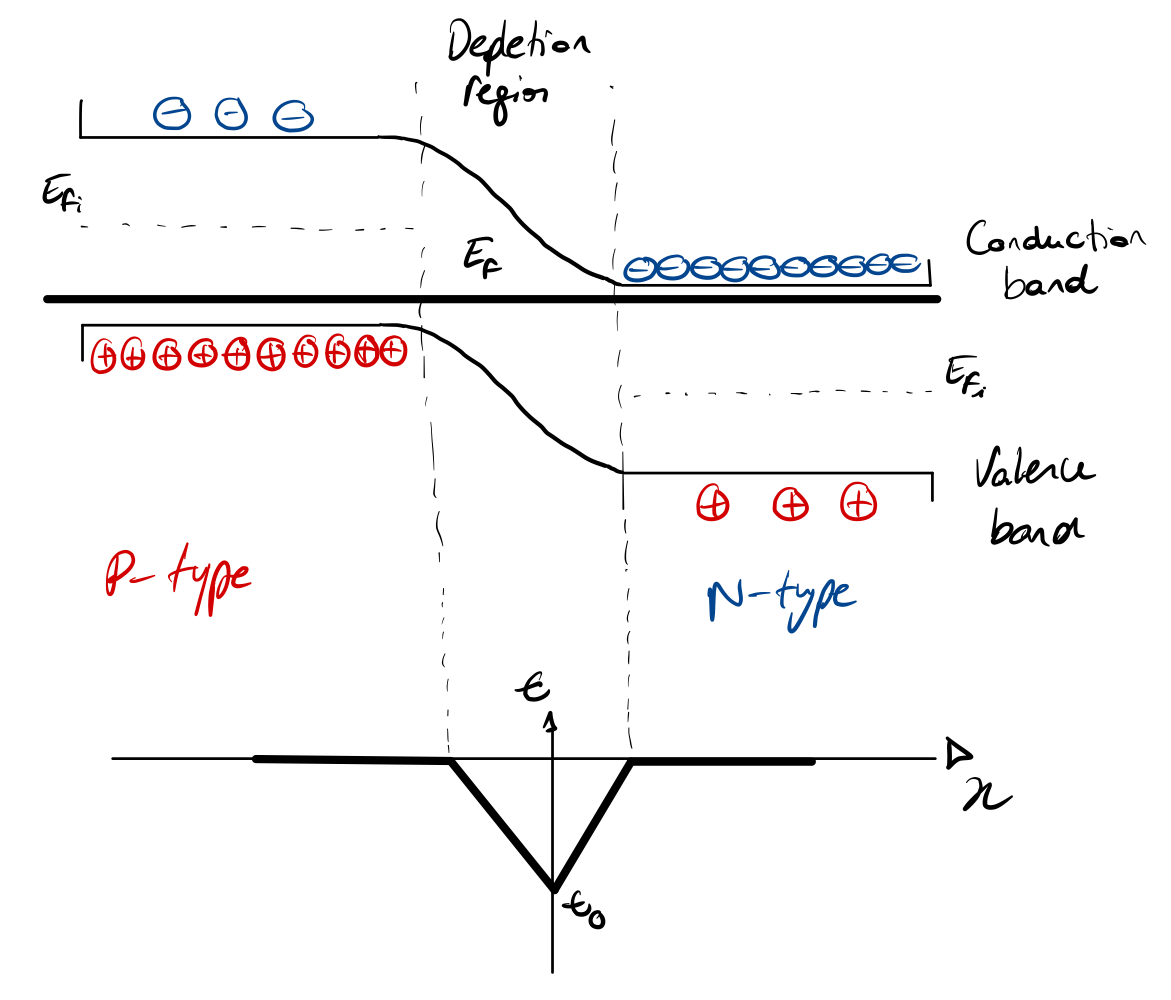 Depletion
region
E_fi
E_F
Conduction
band
E_fi
Valence
band
P-type
N-type
ε
x
ε_0